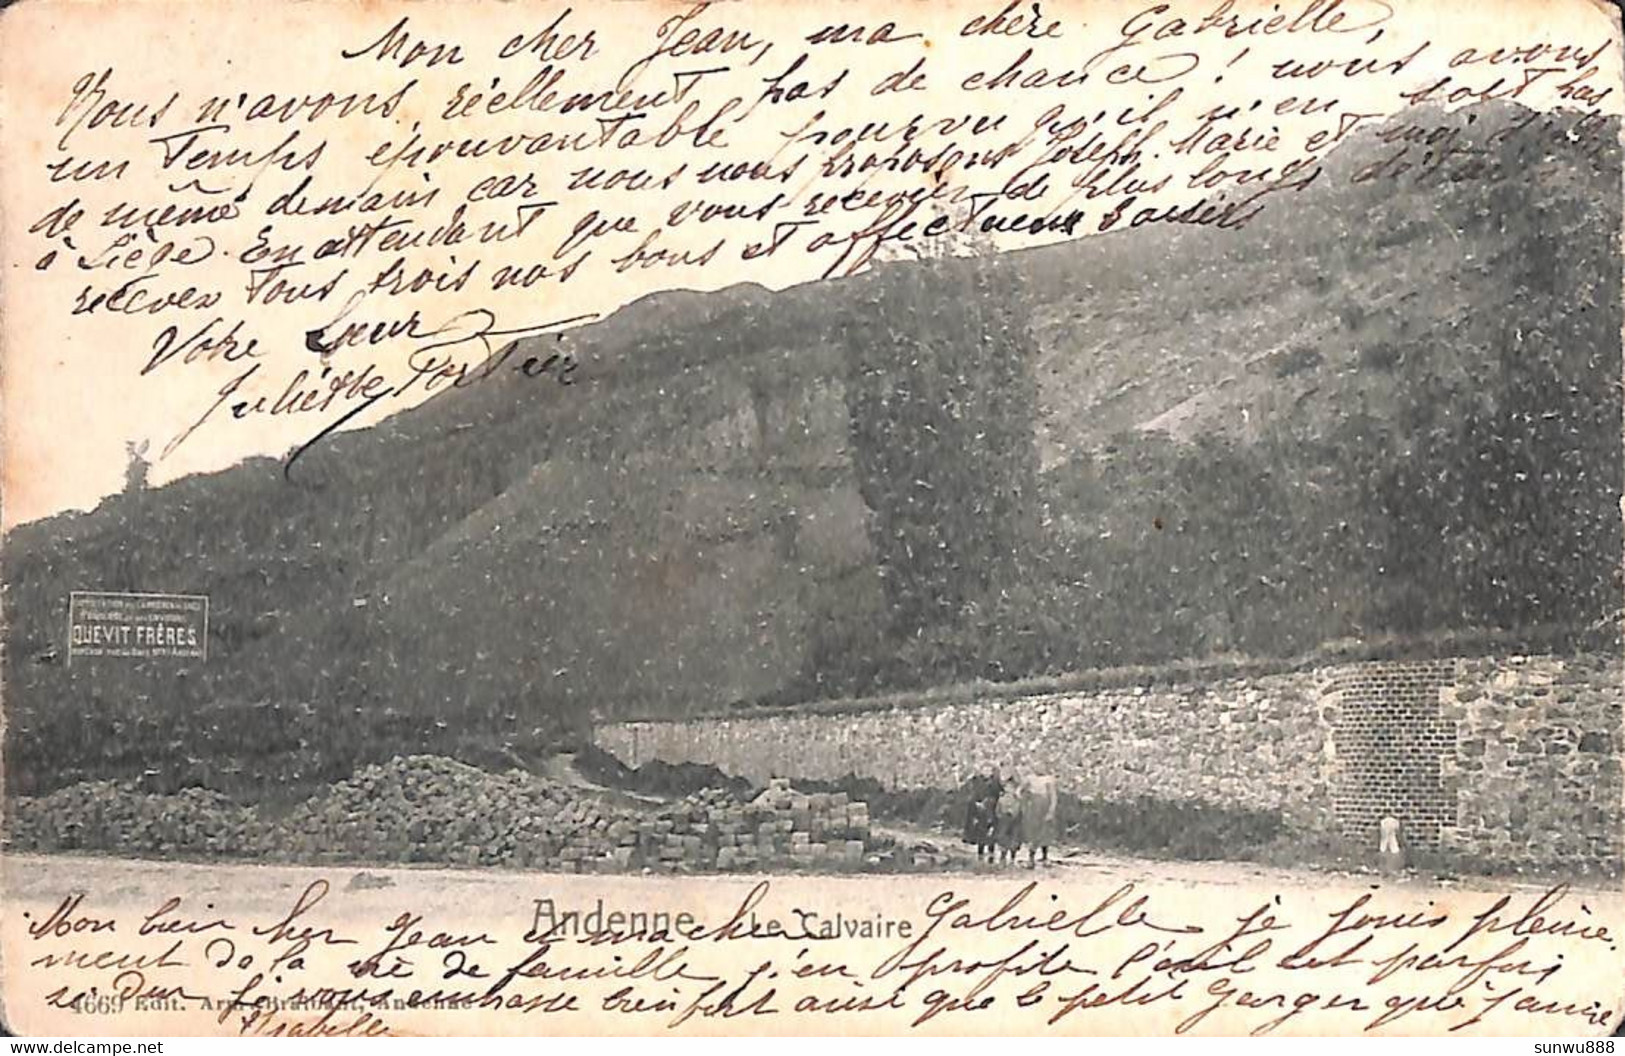 Mon cher Jean, ma chère Gabrielle,
Nous n'avons réellement pas de chance ! nous avons
un temps épouvantable pourvu qu'il n'en soit pas
de même demain car nous nous proposons Joseph. Marie et moi
à Liège. En attendant que vous recevoir de plus longs
recevez tous trois nos bons et affectueux baisers
Votre Sœur
Juliette
QUEVIT FRÈRES
Andenne Le Calvaire
Mon bien cher Jean et ma chère Gabrielle je jouis pleine-
ment de la vie de famille j'en profite l'exil est parfois
si dur. Je vous embrasse bien fort ainsi que le petit que j'aime
Isabelle
4669 Edit. Andenne
sunwu888
delcampe.net